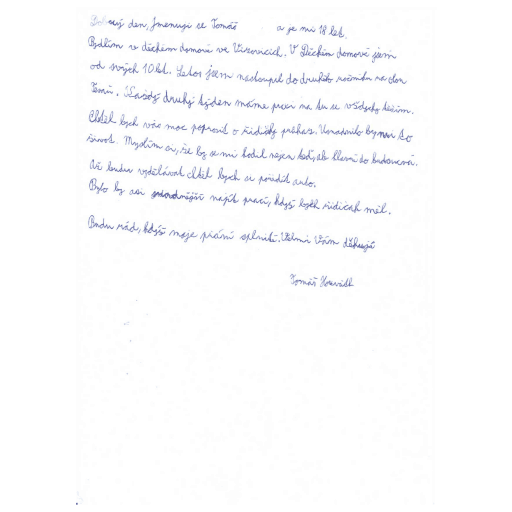 Dobrý den, jmenuji se Tomáš a je mi 18 let.
Bydlím v dětském domově ve Vizovicích. V Dětském domově jsem
od svých 10 let. Letos jsem nastoupil do druhého ročníku na obor
Každý druhý týden máme praxi na tu se vždycky těším.
Chtěl bych vás moc poprosit o řidičský průkaz. Usnadnilo by mi to
život. Myslím si, že by se mi hodil nejen teď, ale hlavně do budoucna.
Až budu vydělávat chtěl bych si pořídit auto.
Bylo by asi jednodnější najít práci, když bych řidičák měl.
Budu rád, když moje přání splníte. Velmi Vám děkuji
Tomáš Horváth